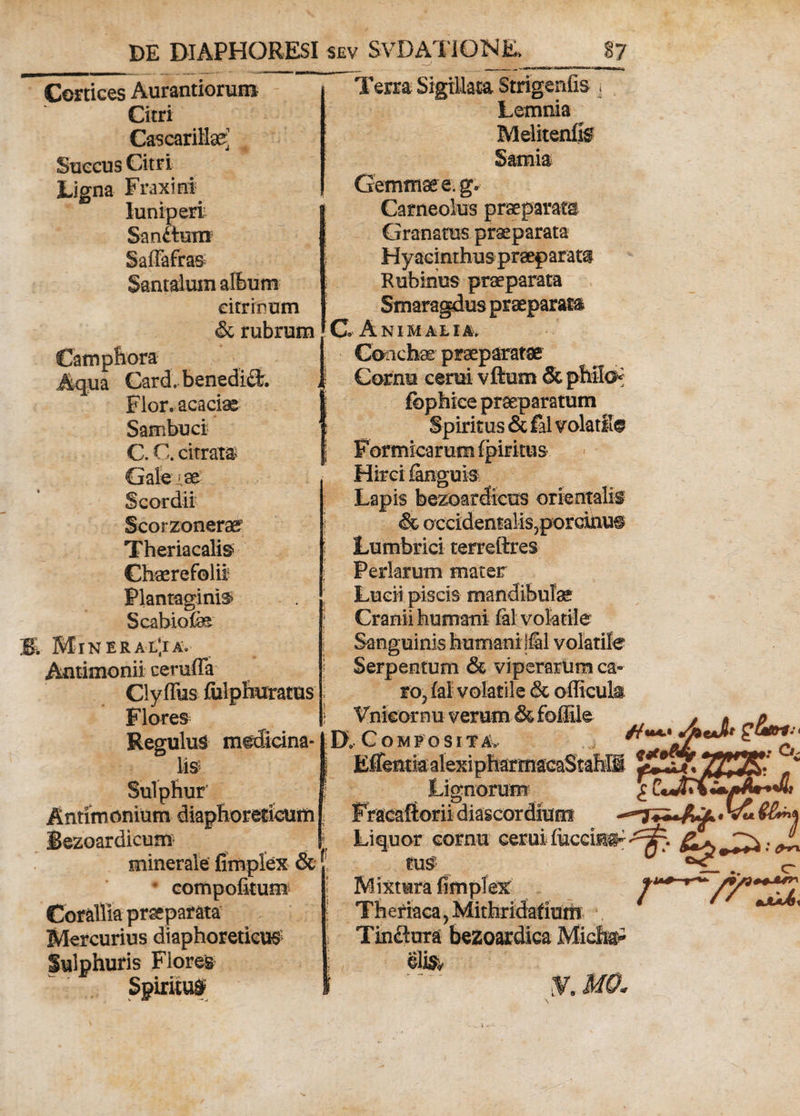 DE DIAPHORESI SEV SVDATIONE. 87
Cortices Aurantiorum
Citri
Cascarillæ
Succus Citri
Ligna Fraxini
Iuniperi
Sanctum
Saſſafras
Santalum album
citrinum
& rubrum
Camphora
Aqua Card. benedict.
Flor. acaciæ
Sambuci
C. C. citrata
Galegæ
Scordii
Scorzoneræ
Theriacalis
Chærefolii
Plantaginis
Scabioſæ
B. MINERALIA.
Antimonii ceruſſa
Clyſſus ſulphuratus
Flores
Regulus medicina-
lis
Sulphur
Antimonium diaphoreticum
Bezoardicum
minerale ſimplex &
compoſitum
Corallia præparata
Mercurius diaphoreticus
Sulphuris Flores
Spiritus
Terra Sigillata Strigenſis
Lemnia
Melitenſis
Samia
Gemmæ e. g.
Carneolus præparata
Granatus præparata
Hyacinthus præparata
Rubinus præparata
Smaragdus præparata
C. ANIMALIA.
Conchæ præparatæ
Cornu cerui vſtum & philo-
ſophice præparatum
Spiritus & ſal volatile
Formicarum ſpiritus
Hirci ſanguis
Lapis bezoardicus orientalis
& occidentalis, porcinus
Lumbrici terreſtres
Perlarum mater
Lucii piscis mandibulæ
Cranii humani ſal volatile
Sanguinis humani ſal volatile
Serpentum & viperarum ca-
ro, ſal volatile & oſſicula
Vnicornu verum & foſſile
D. COMPOSITA.
Eſſentia alexipharmaca Stahlii
Lignorum
Fracaſtorii diascordium
Liquor cornu cerui ſuccina-
tus
Mixtura ſimplex
Theriaca, Mithridatium
Tinctura bezoardica Micha-
elis.
V. MO.